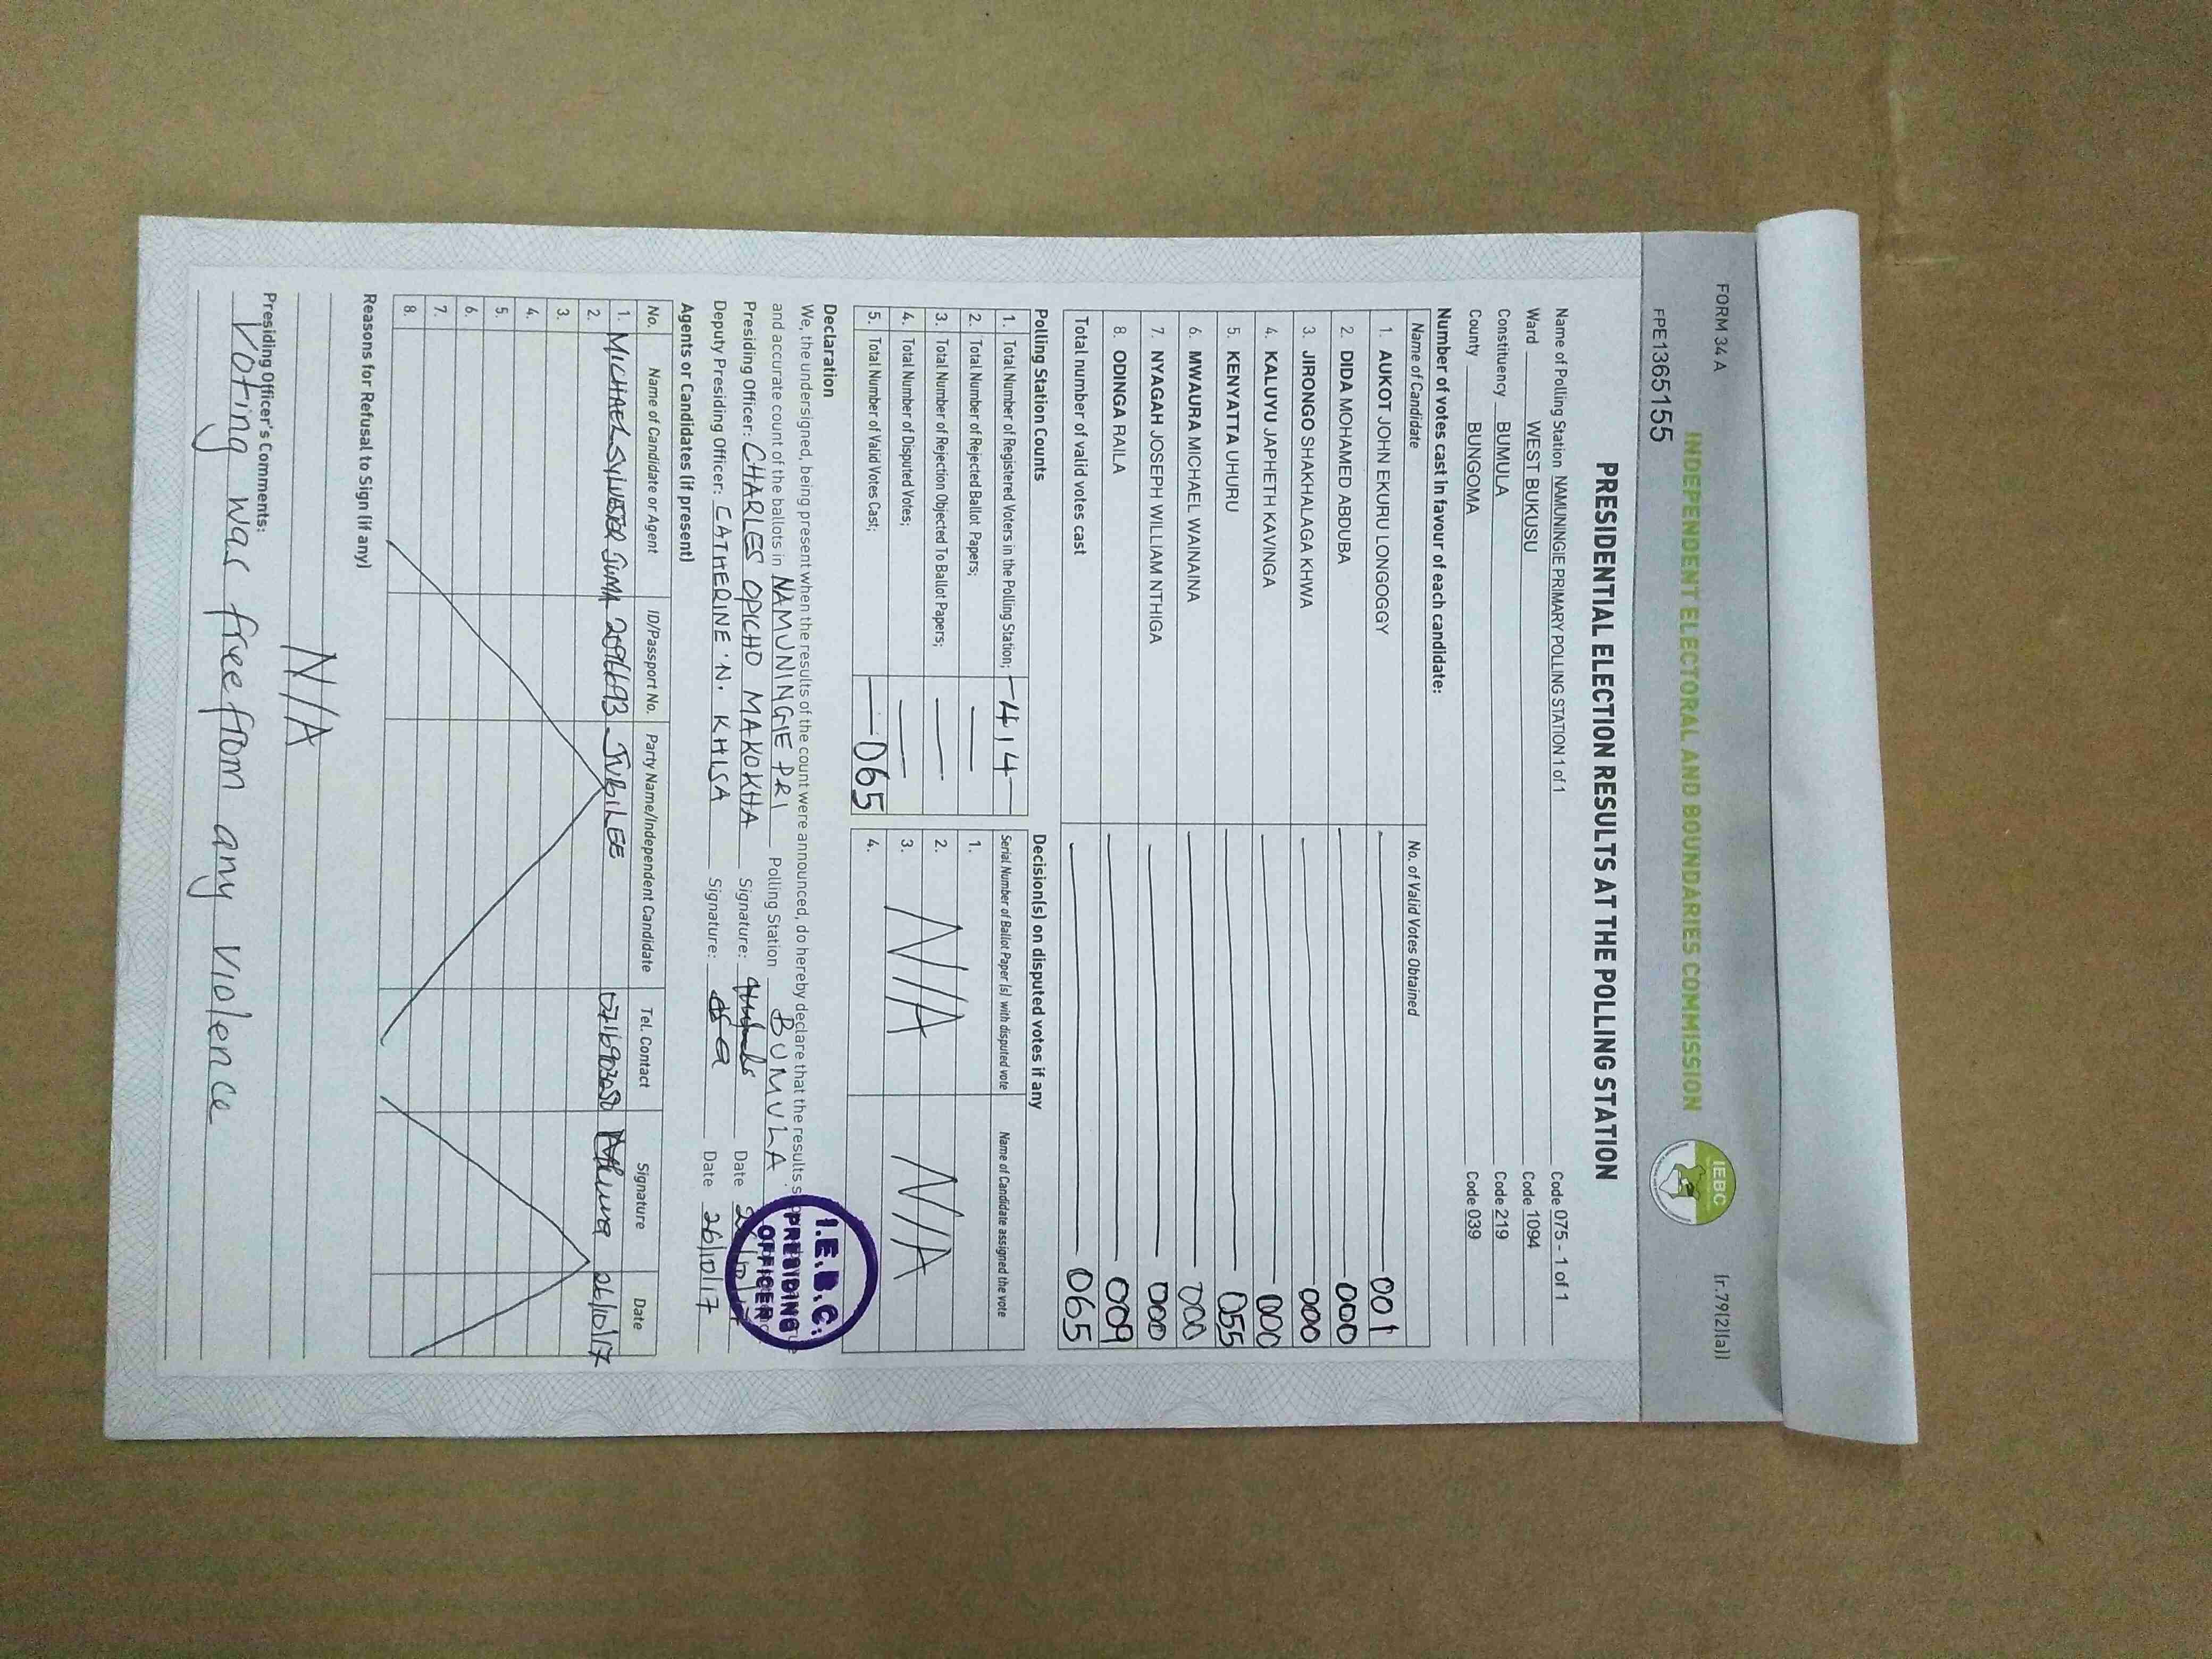 FORM 34 A
(r.79(2)(a))
INDEPENDENT ELECTORAL AND BOUNDARIES COMMISSION
IEBC
FPE1365155
PRESIDENTIAL ELECTION RESULTS AT THE POLLING STATION
Name of Polling Station NAMUNINGIE PRIMARY POLLING STATION 1 of 1 Code 075 - 1 of 1
Ward WEST BUKUSU Code 1094
Constituency BUMULA Code 219
County BUNGOMA Code 039
Number of votes cast in favour of each candidate:
Name of Candidate No. of Valid Votes Obtained
1. AUKOT JOHN EKURU LONGOGGY 001
2. DIDA MOHAMED ABDUBA 000
3. JIRONGO SHAKHALAGA KHWA 000
4. KALUYU JAPHETH KAVINGA 000
5. KENYATTA UHURU 055
6. MWAURA MICHAEL WAINAINA 000
7. NYAGAH JOSEPH WILLIAM NTHIGA 000
8. ODINGA RAILA 009
Total number of valid votes cast 065
Polling Station Counts Decision(s) on disputed votes if any
1. Total Number of Registered Voters in the Polling Station; 414 Serial Number of Ballot Paper (s) with disputed vote Name of Candidate assigned the vote
2. Total Number of Rejected Ballot Papers; — 1.
3. Total Number of Rejection Objected To Ballot Papers; — 2. N/A N/A
4. Total Number of Disputed Votes; — 3.
5. Total Number of Valid Votes Cast; 065 4.
Declaration
We, the undersigned, being present when the results of the count were announced, do hereby declare that the results
and accurate count of the ballots in NAMUNINGIE PRI Polling Station BUMULA
Presiding Officer: CHARLES OPICHO MAKOKHA Signature: Date
Deputy Presiding Officer: CATHERINE N. KHISA Signature: Date 26/10/17
I.E.B.C.
PRESIDING
OFFICER
Agents or Candidates (if present)
No. Name of Candidate or Agent ID/Passport No. Party Name/Independent Candidate Tel. Contact Signature Date
1. MICHAEL SYLVESTER JUMA JUBILEE 26/10/17
2.
3.
4.
5.
6.
7.
8.
Reasons for Refusal to Sign (if any)
N/A
Presiding Officer's Comments:
Voting was free from any violence